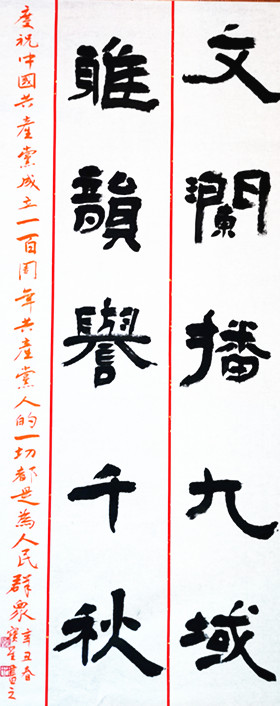 文瀾播九域
雅韻譽千秋
慶祝中國共產黨成立一百周年共產黨人的一切都是為人民群眾辛丑春
書之